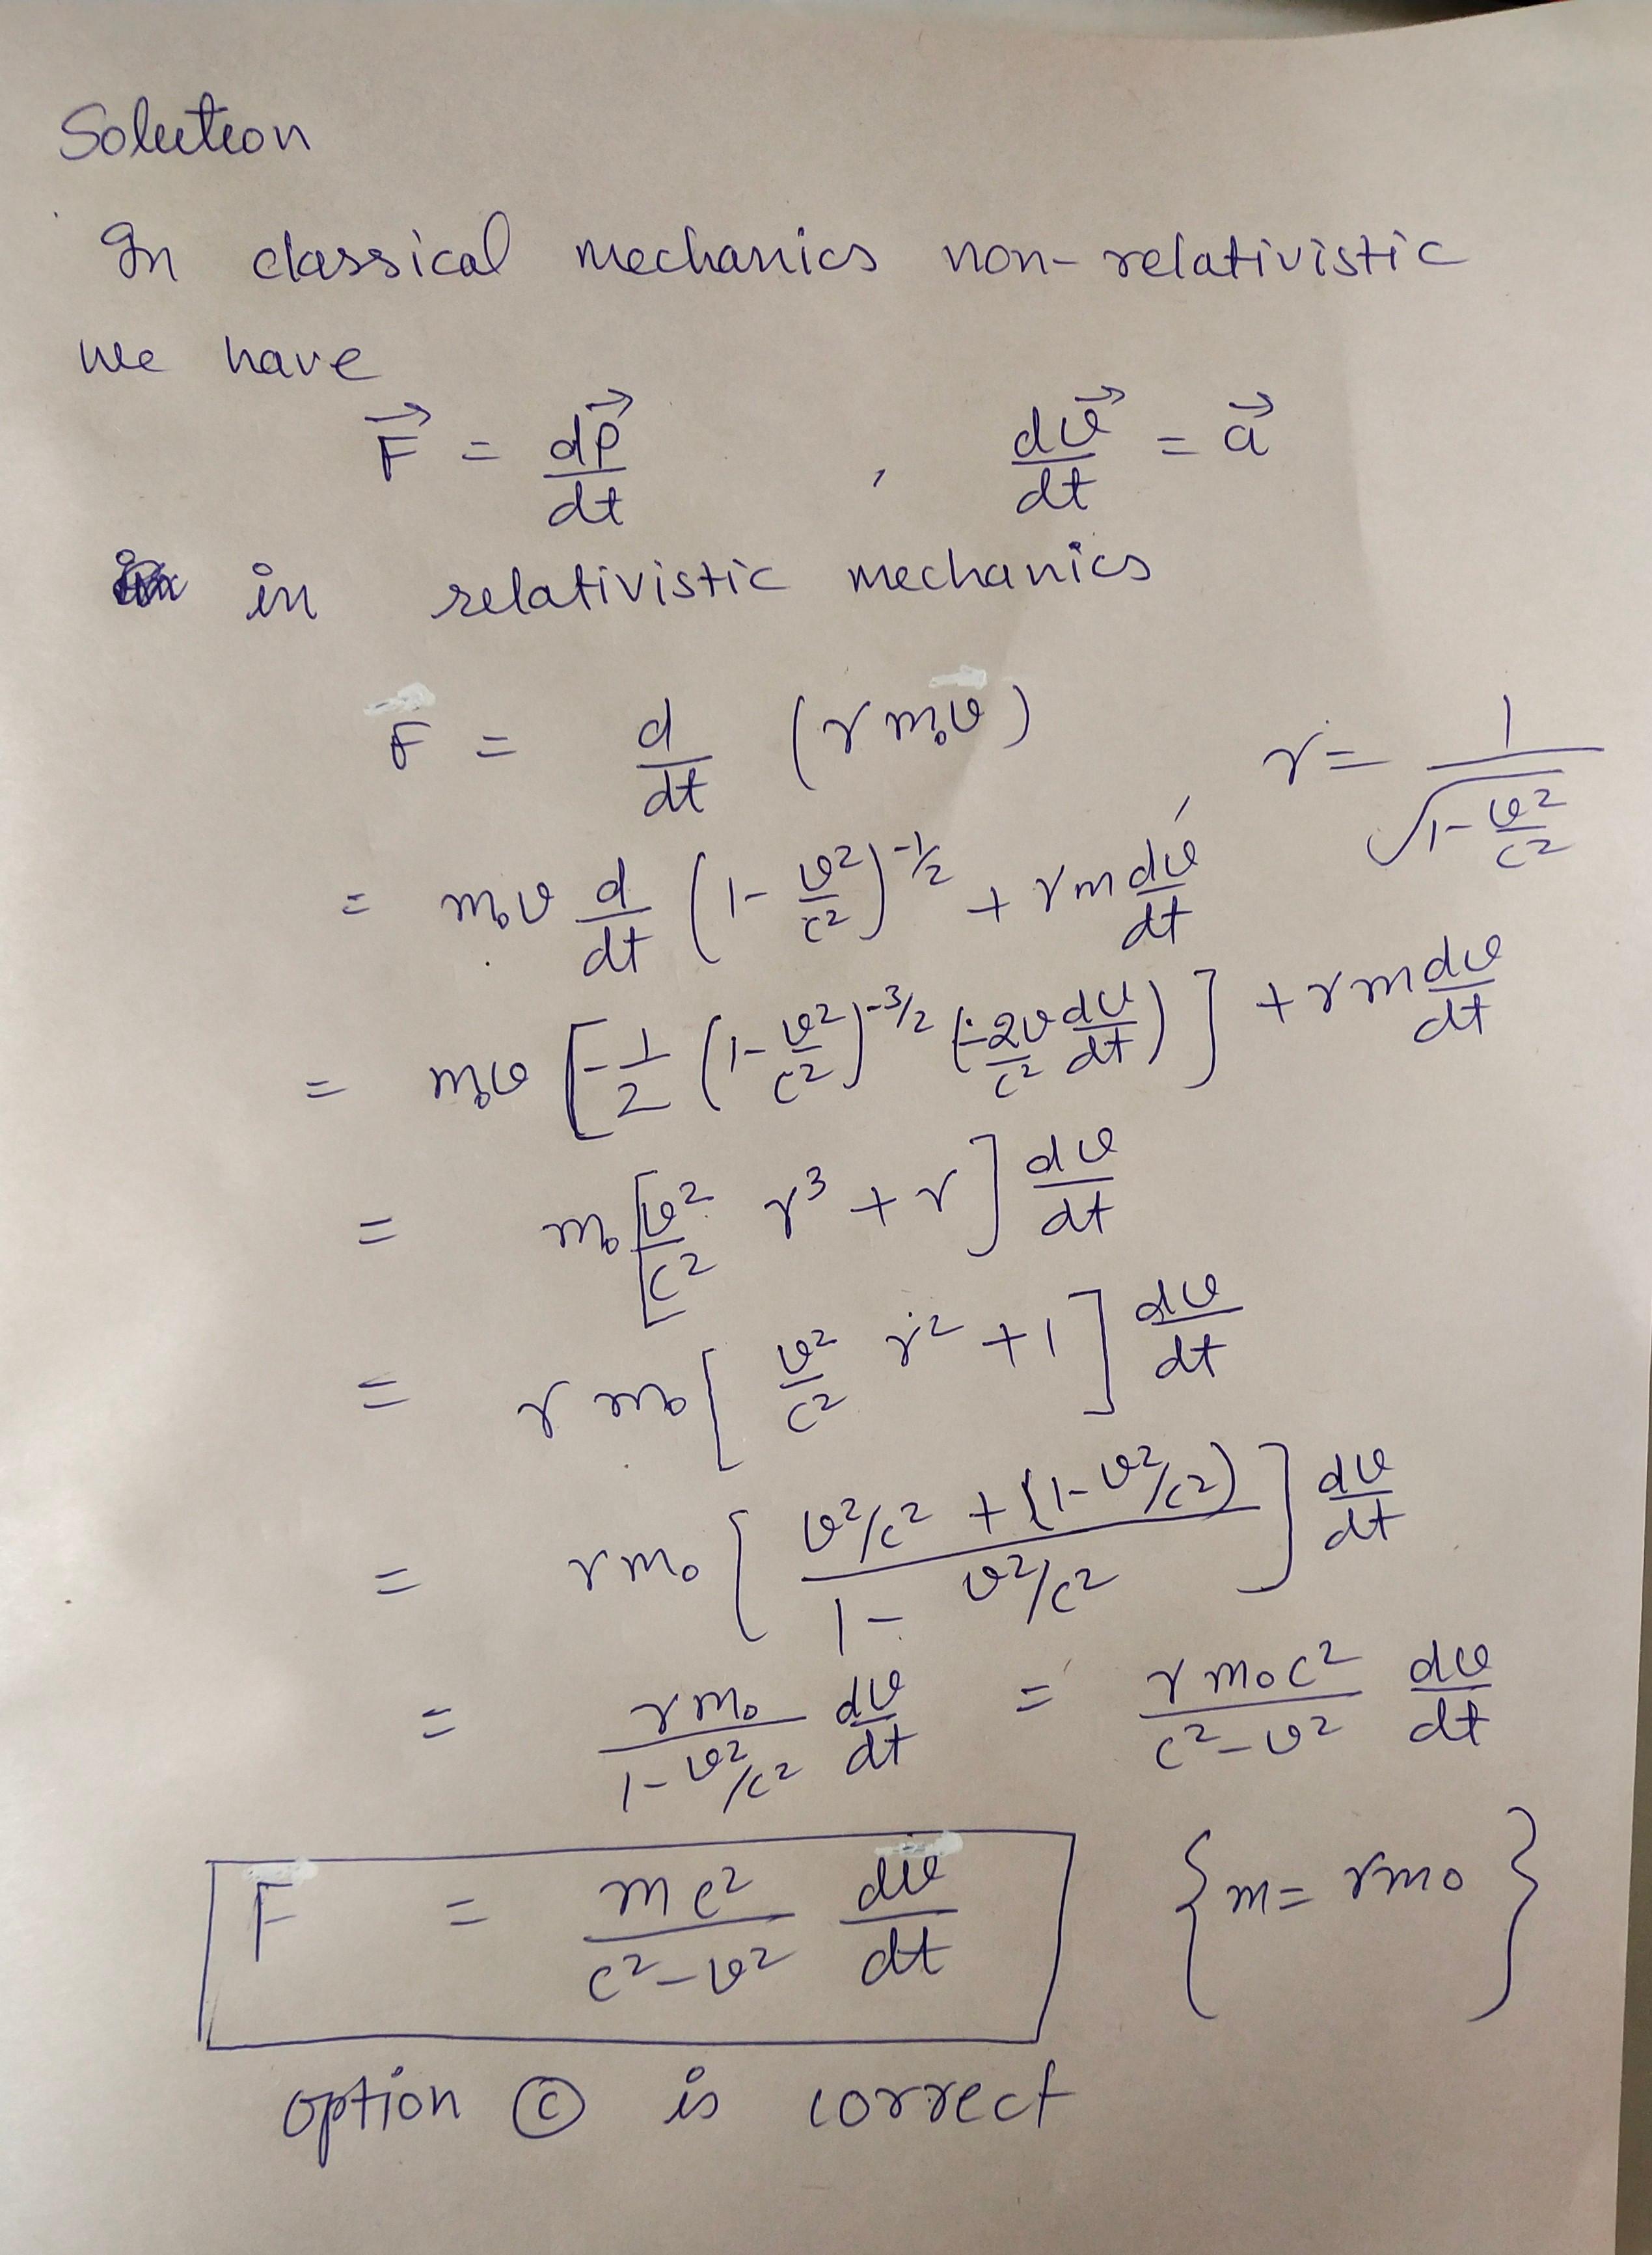 Solution
In classical mechanics non-relativistic
we have
F⃗ = dp⃗/dt , dv⃗/dt = a⃗
in relativistic mechanics
F = d/dt (γ m₀v) , γ = 1/√(1-v²/c²)
= m₀v d/dt (1-v²/c²)^(-1/2) + γm dv/dt
= m₀v [-1/2 (1-v²/c²)^(-3/2) (-2v/c² dv/dt)] + γm dv/dt
= m₀[v²/c² γ³ + γ] dv/dt
= γ m₀[v²/c² γ² + 1] dv/dt
= γm₀ [(v²/c² + (1-v²/c²))/(1- v²/c²)] dv/dt
= γm₀/(1-v²/c²) dv/dt = γm₀c²/(c²-v²) dv/dt
F = mc²/(c²-v²) dv/dt {m= γm₀}
option ⓒ is correct